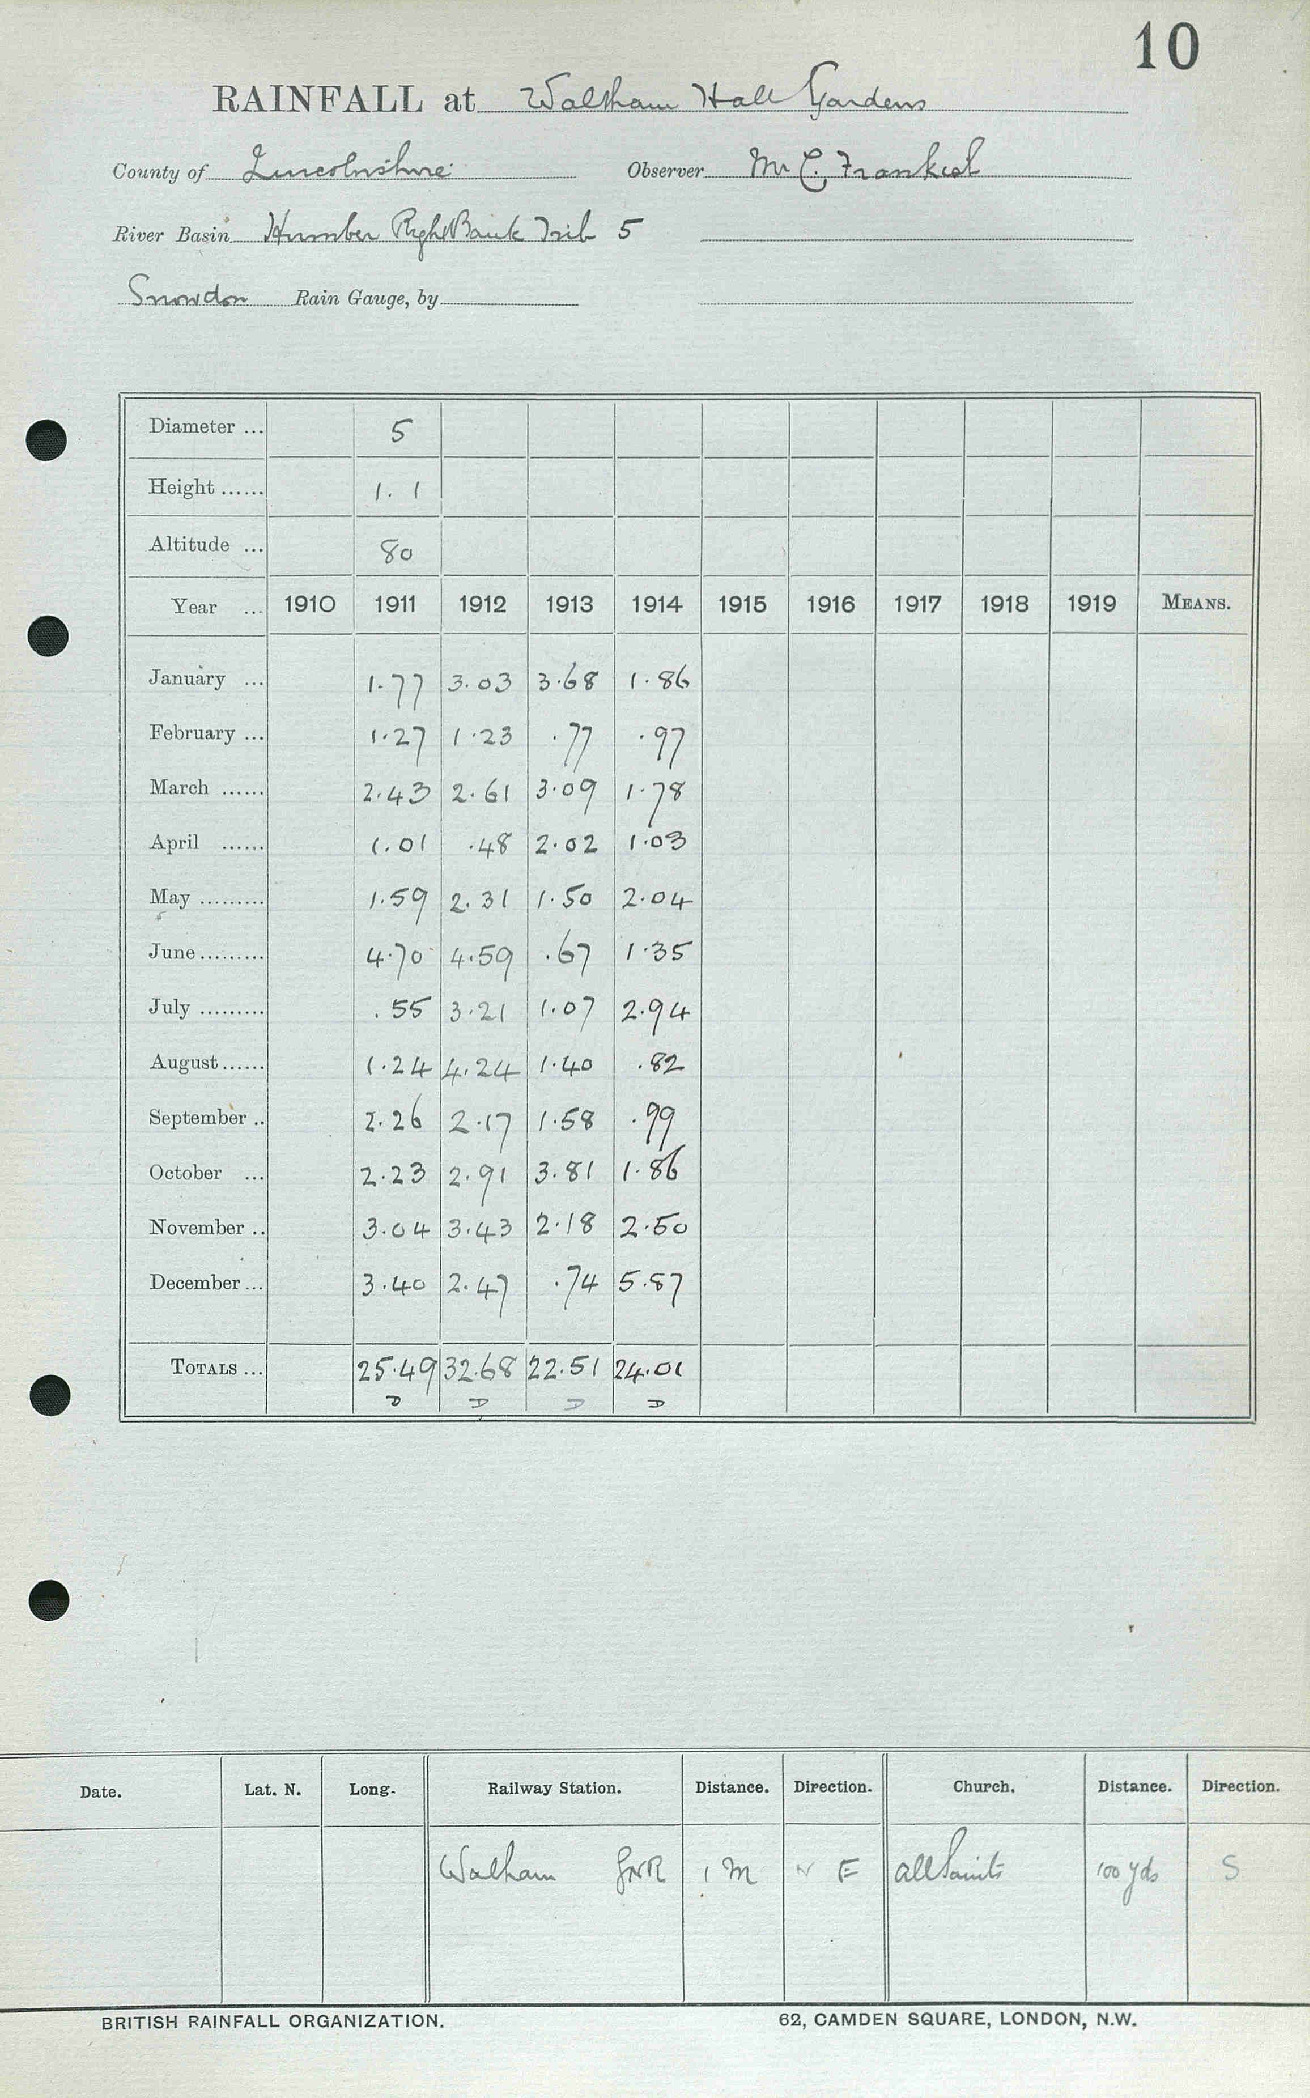 10
RAINFALL at Waltham Hall Gardens
County of Lincolnshire Observer Mr C. Frankish
River Basin Humber Right Bank Trib 5
Snowdon Rain Gauge, by
Diameter ... 5
Height ...... 1.1
Altitude ... 80
Year ... 1910 1911 1912 1913 1914 1915 1916 1917 1918 1919 MEANS.
January ... 1.77 3.03 3.68 1.86
February ... 1.27 1.23 .77 .97
March ...... 2.43 2.61 3.09 1.78
April ...... 1.01 .48 2.02 1.03
May ......... 1.59 2.31 1.50 2.04
June ......... 4.70 4.59 .67 1.35
July ......... .55 3.21 1.07 2.94
August ...... 1.24 4.24 1.40 .82
September .. 2.26 2.17 1.58 .99
October ... 2.23 2.91 3.81 1.86
November .. 3.04 3.43 2.18 2.50
December ... 3.40 2.47 .74 5.87
TOTALS ... 25.49 32.68 22.51 24.01
D D D D
Date. Lat. N. Long. Railway Station. Distance. Direction. Church. Distance. Direction.
Waltham GNR 1 M N E All Saints 100 yds S
BRITISH RAINFALL ORGANIZATION. 62, CAMDEN SQUARE, LONDON, N.W.